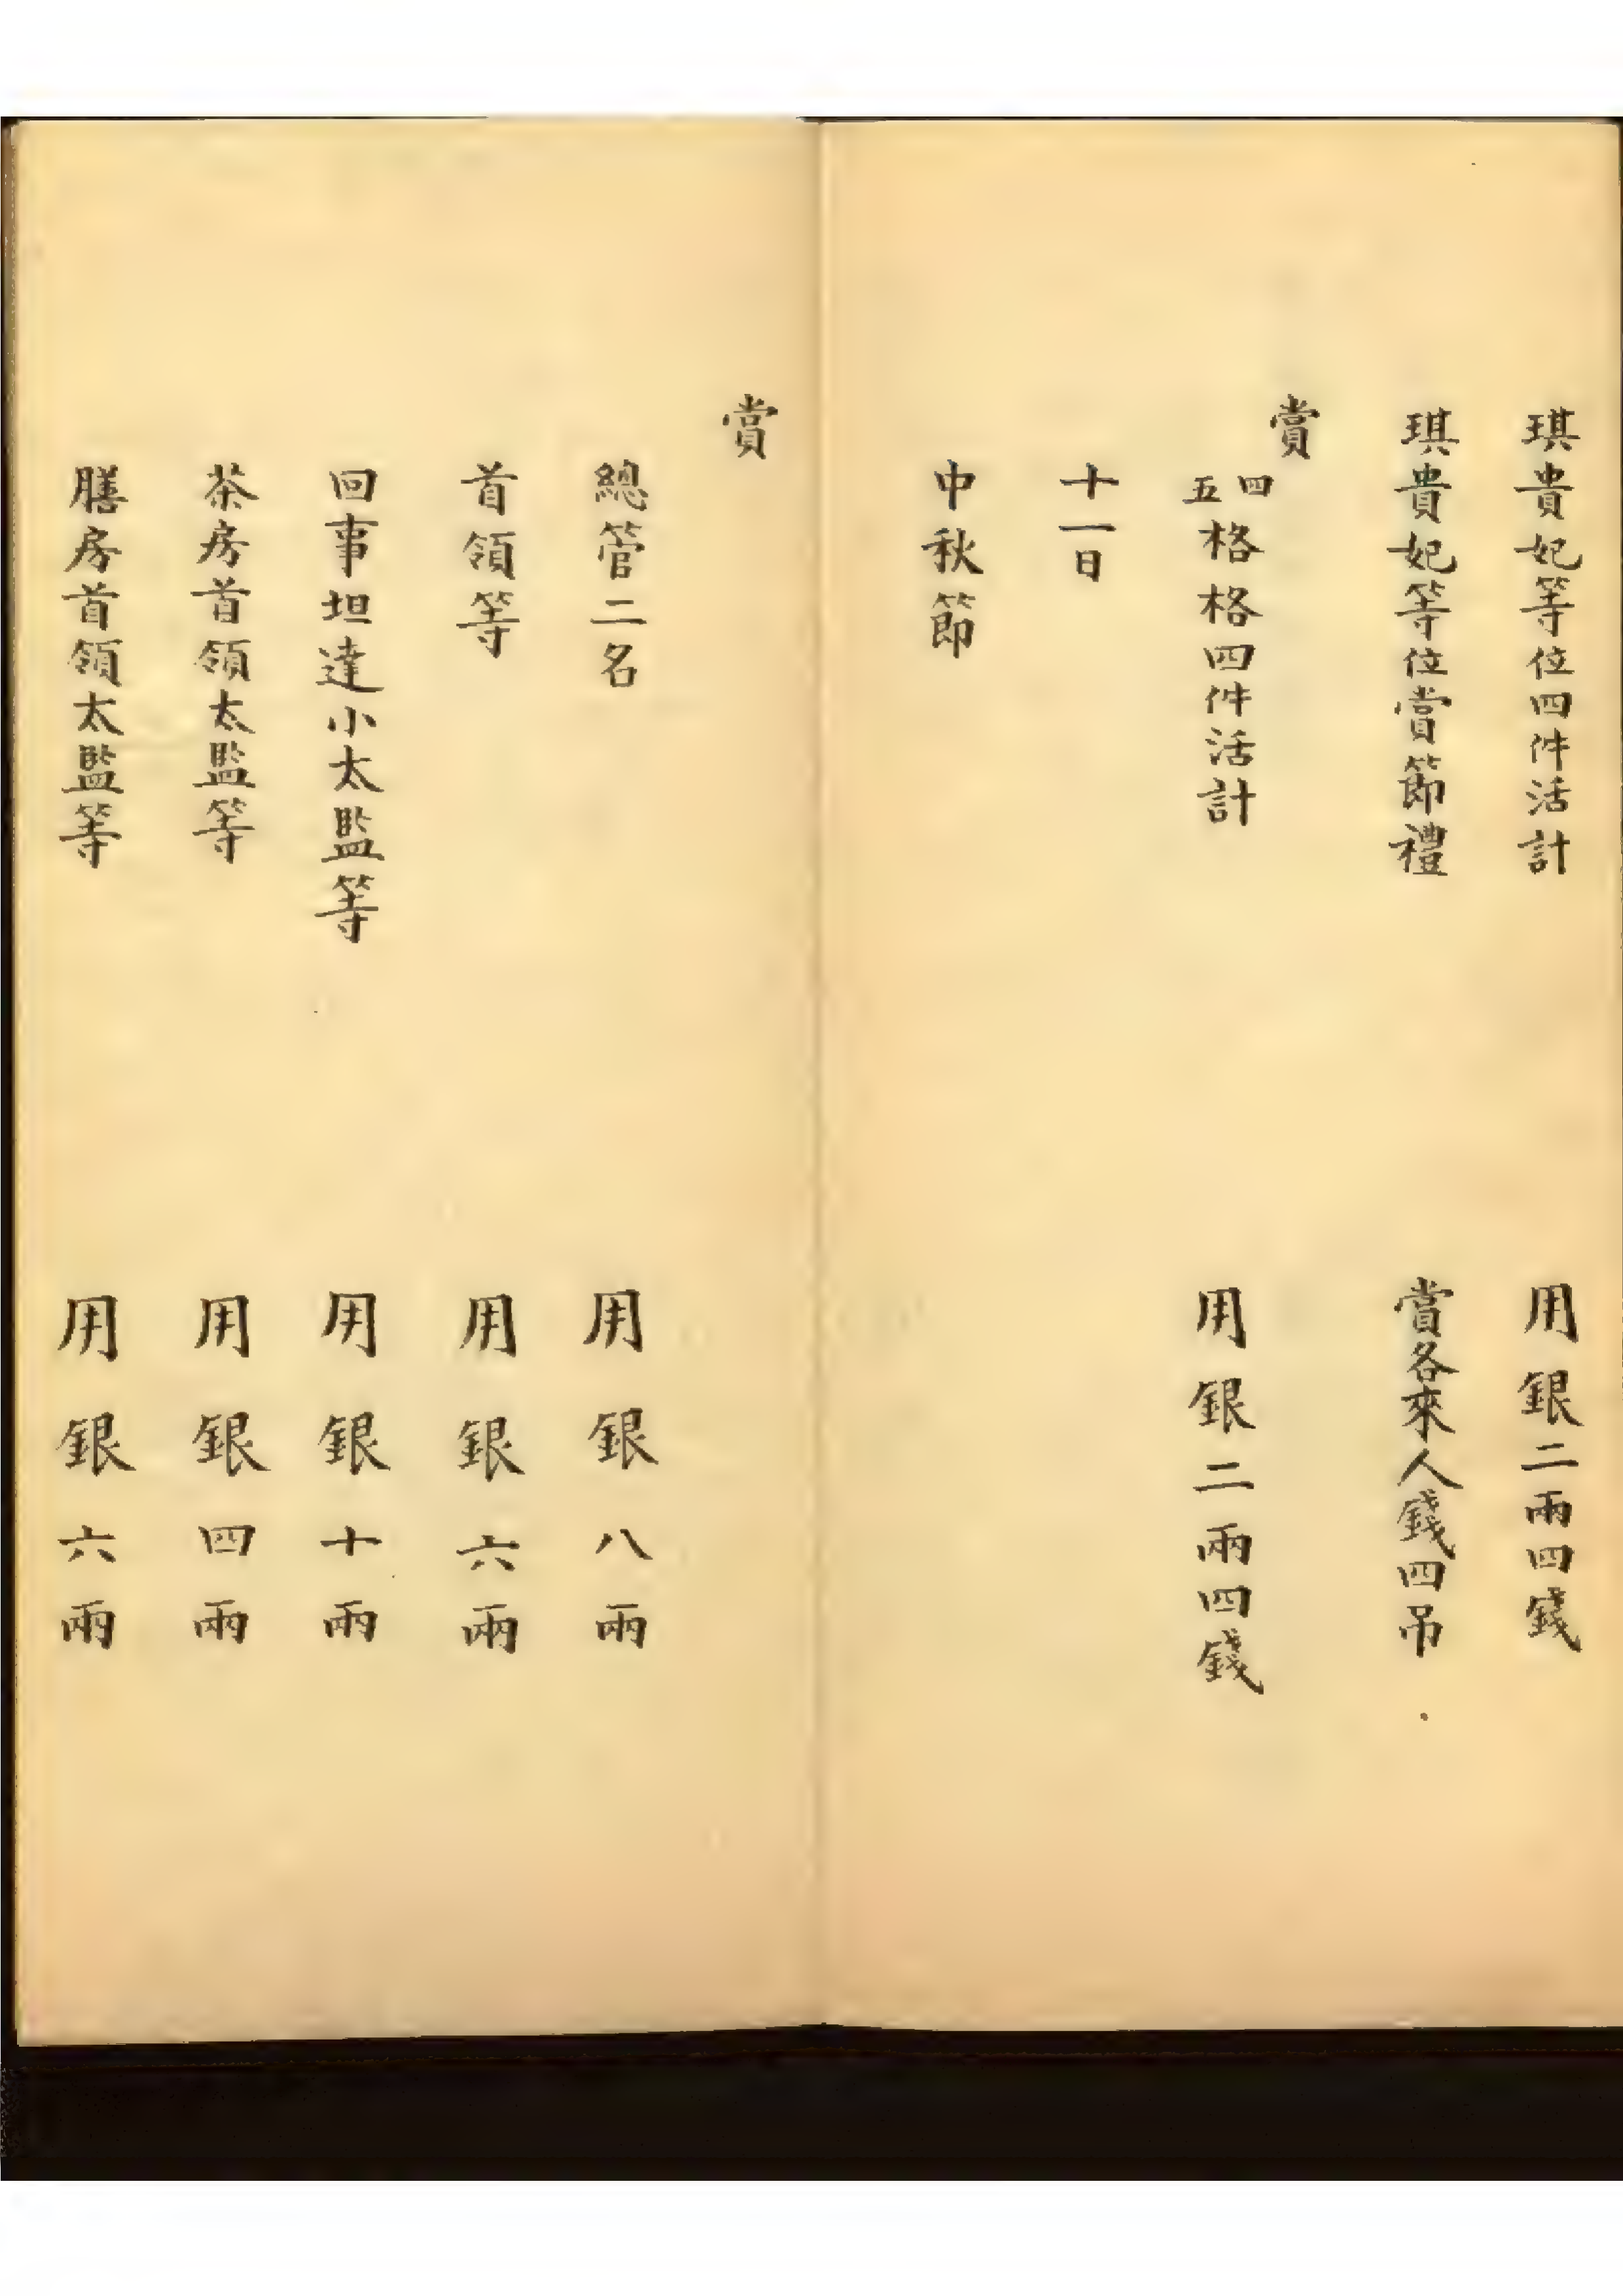 琪貴妃等位四件活計 用銀二兩四錢
琪貴妃等位賞節禮 賞各來人錢四吊
賞
四五格格四件活計 用銀二兩四錢
十一日
中秋節
賞
總管二名 用銀八兩
首領等 用銀六兩
回事坦達小太監等 用銀十兩
茶房首領太監等 用銀四兩
膳房首領太監等 用銀六兩